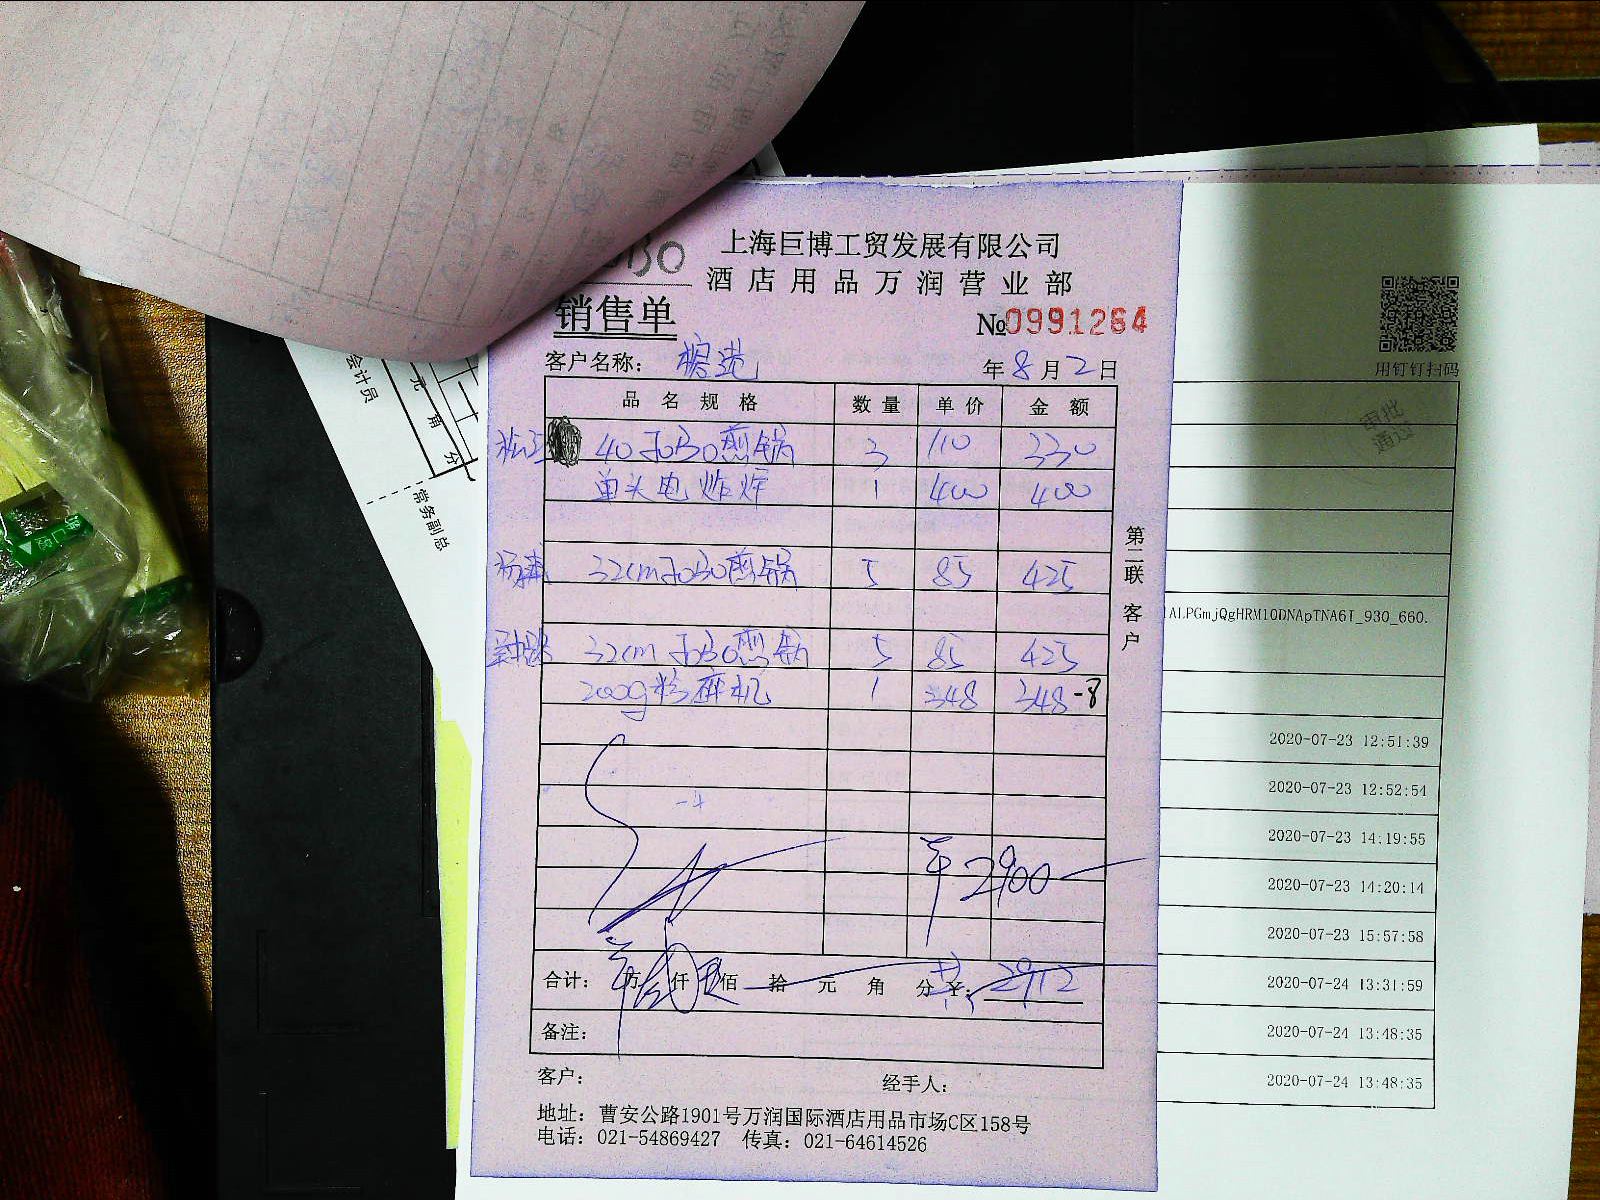 上海巨博工贸发展有限公司
酒店用品万润营业部
销售单
№0991264
客户名称：
年8月2日
品名规格 数量 单价 金额
40 JOBO煎锅 3 110 330
单头电炸炉 1 400 400
32cm JOBO煎锅 5 85 425
32cm JOBO煎锅 5 85 425
200g粉碎机 1 348 348-8
2900
合计： 万 仟 佰 拾 元 角 分 ￥：2912
备注：
客户： 经手人：
地址：曹安公路1901号万润国际酒店用品市场C区158号
电话：021-54869427 传真：021-64614526
第二联 客户
会计员
元 角 分
常务副总
用钉钉扫码
审批
通过
ALPGmjQgHRM10DNApTNA6I_930_660.
2020-07-23 12:51:39
2020-07-23 12:52:54
2020-07-23 14:19:55
2020-07-23 14:20:14
2020-07-23 15:57:58
2020-07-24 13:31:59
2020-07-24 13:48:35
2020-07-24 13:48:35